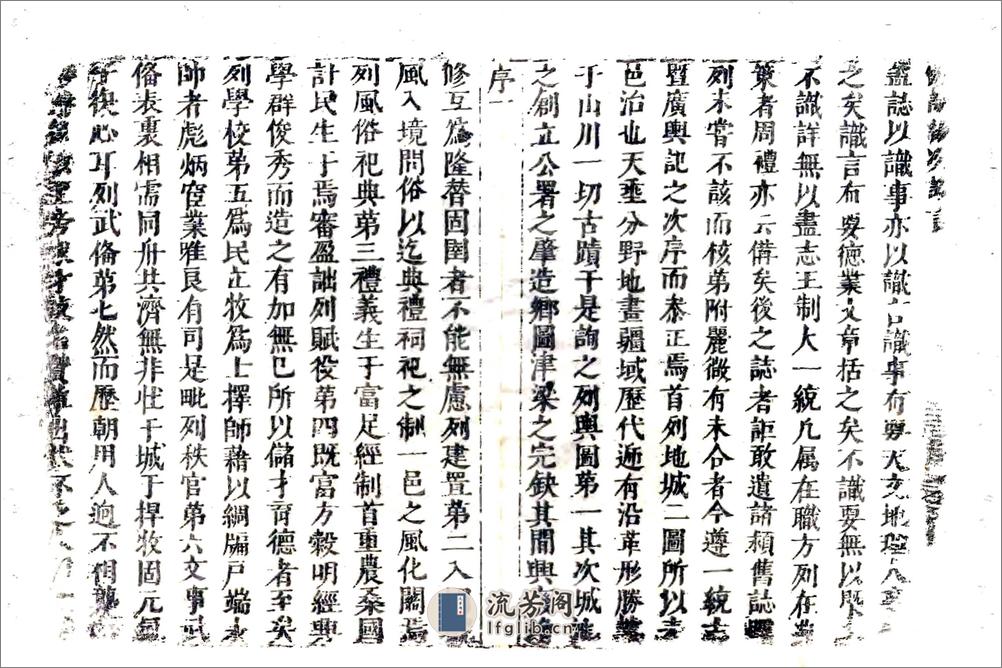 盖誌以識事亦以識言識事有要天文地理
之矣識言有要德業文章括之矣不識要無以
不識詳無以盡志王制大一統凡属在職方列在
策者周禮亦云備矣後之誌者詎敢遺諸頪舊誌
列未嘗不該而核第附麗微有未合者今遵一統志
暨廣輿記之次序而叅正焉首列地城二圖所以志
邑治也天垂分野地畫疆域歷代遞有沿革形勝
于山川一切古蹟于是詢之列輿圖第一其次城
之創立公署之肇造鄉圖津梁之完缺其間興
序一
修互爲隆替固圉者不能無慮列建置第二入
風入境問俗以迄典禮祠祀之制一邑之風化關焉
列風俗祀典第三禮義生于富足經制首重農桑國
計民生于焉審盈詘列賦役第四既富方穀明經興
學群俊秀而造之有加無已所以儲才育德者至矣
列學校第五爲民立牧爲士擇師藉以綢牖戶端
帥者彪炳宦業雅良有司是毗列秩官第六文事武
俻表裏相需同舟共濟無非壮干城于捍牧固元氣
于腹心耳列武俻第七然而歷朝用人逈不
流芳阁
lfglib.cn